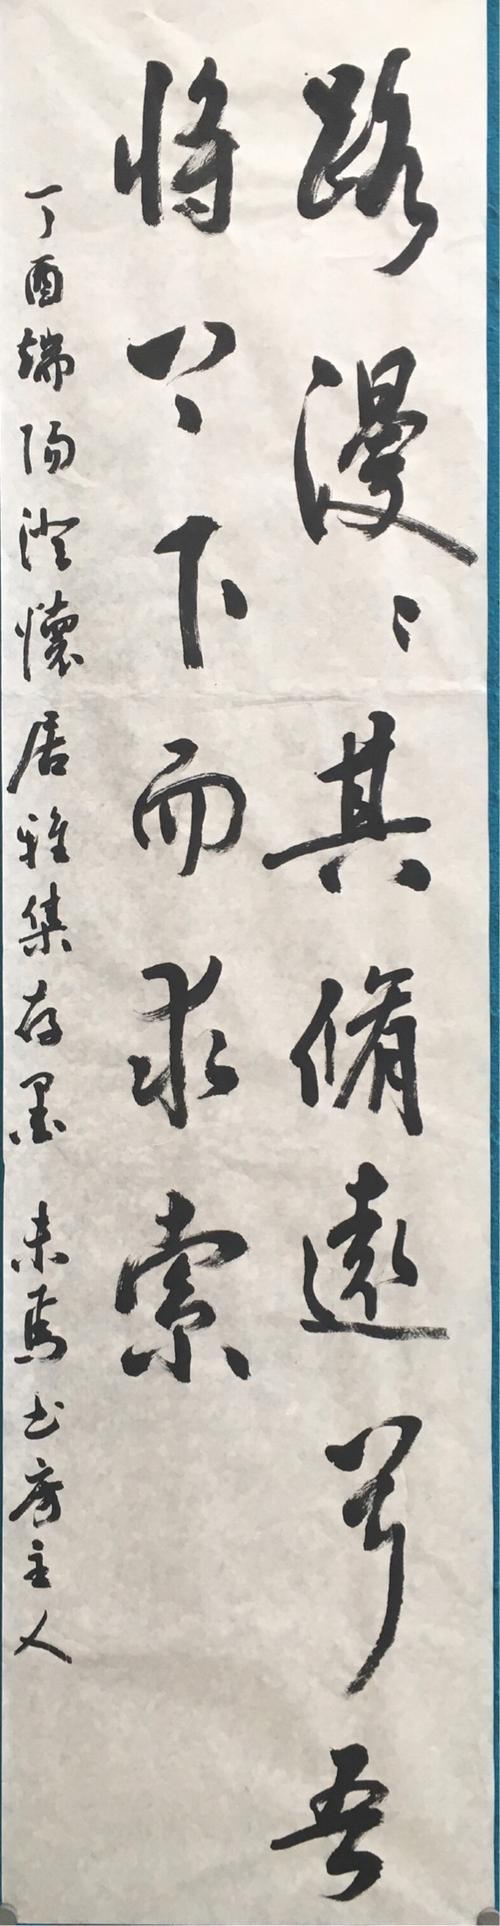 路漫〻其脩遠兮吾
将上下而求索
丁酉端陽澄懷居雅集存墨 未焉书房主人